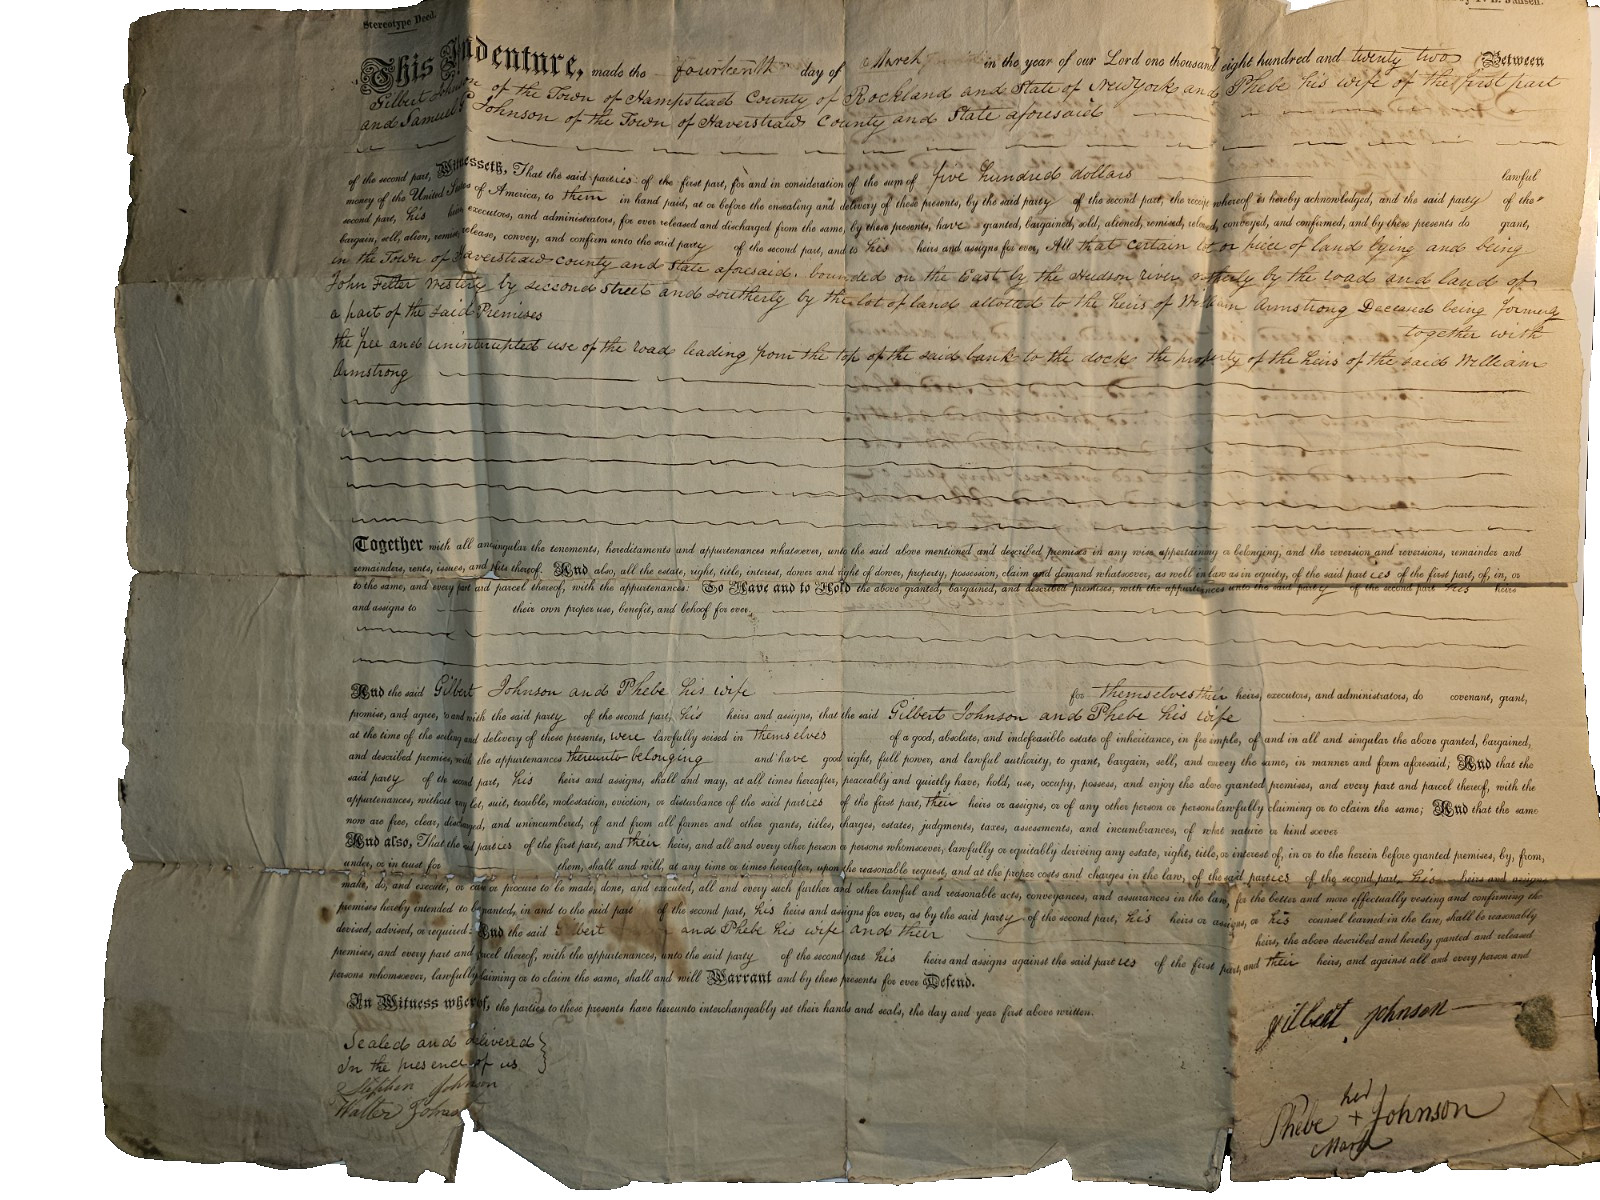 Stereotype Deed.
This Indenture, made the fourteenth day of March in the year of our Lord one thousand eight hundred and twenty two Between
Gilbert Johnson of the Town of Hampstead County of Rockland and State of New York and Phebe his wife of the first part
and Samuel Johnson of the Town of Haverstraw County and State aforesaid
of the second part, Witnesseth, That the said parties of the first part, for and in consideration of the sum of five hundred dollars lawful
money of the United States of America, to them in hand paid, at or before the ensealing and delivery of these presents, by the said party of the second part, the receipt whereof is hereby acknowledged, and the said party of the
second part, his heirs executors, and administrators, for ever released and discharged from the same, by these presents, have granted, bargained, sold, aliened, remised, released, conveyed, and confirmed, and by these presents do grant,
bargain, sell, alien, remise, release, convey, and confirm unto the said party of the second part, and to his heirs and assigns for ever, All that certain lot or piece of land lying and being
in the Town of Haverstraw county and State aforesaid. bounded on the East by the Hudson river by the road and land of
John Felter westerly by second Street and southerly by the lot of land allotted to the heirs of William Armstrong Deceased being formerly
a part of the said Premises together with
the free and uninterrupted use of the road leading from the top of the said bank to the dock the property of the heirs of the said William
Armstrong
Together with all and singular the tenements, hereditaments and appurtenances whatsoever, unto the said above mentioned and described premises in any wise appertaining or belonging, and the reversion and reversions, remainder and
remainders, rents, issues, and profits thereof. And also, all the estate, right, title, interest, dower and right of dower, property, possession, claim and demand whatsoever, as well in law as in equity, of the said parties of the first part, of, in, or
to the same, and every part and parcel thereof, with the appurtenances: To Have and to Hold the above granted, bargained, and described premises, with the appurtenances unto the said party of the second part his heirs
and assigns to their own proper use, benefit, and behoof for ever.
And the said Gilbert Johnson and Phebe his wife for themselves their heirs, executors, and administrators, do covenant, grant,
promise, and agree, to and with the said party of the second part, his heirs and assigns, that the said Gilbert Johnson and Phebe his wife
at the time of the sealing and delivery of these presents, were lawfully seised in themselves of a good, absolute, and indefeasible estate of inheritance, in fee simple, of and in all and singular the above granted, bargained,
and described premises, with the appurtenances thereunto belonging and have good right, full power, and lawful authority, to grant, bargain, sell, and convey the same, in manner and form aforesaid; And that the
said party of the second part, his heirs and assigns, shall and may, at all times hereafter, peaceably and quietly have, hold, use, occupy, possess, and enjoy the above granted premises, and every part and parcel thereof, with the
appurtenances, without any let, suit, trouble, molestation, eviction, or disturbance of the said parties of the first part, their heirs or assigns, or of any other person or persons lawfully claiming or to claim the same; And that the same
now are free, clear, discharged, and unincumbered, of and from all former and other grants, titles, charges, estates, judgments, taxes, assessments, and incumbrances, of what nature or kind soever
And also, That the said parties of the first part, and their heirs, and all and every other person or persons whomsoever, lawfully or equitably deriving any estate, right, title, or interest of, in or to the herein before granted premises, by, from,
under, or in trust for them, shall and will, at any time or times hereafter, upon the reasonable request, and at the proper costs and charges in the law, of the said parties of the second part, his heirs and assigns
make, do, and execute, or cause or procure to be made, done, and executed, all and every such further and other lawful and reasonable acts, conveyances, and assurances in the law, for the better and more effectually vesting and confirming the
premises hereby intended to be granted, in and to the said part of the second part, his heirs and assigns for ever, as by the said party of the second part, his heirs or assigns, or his counsel learned in the law, shall be reasonably
devised, advised, or required: And the said Gilbert and Phebe his wife and their heirs, the above described and hereby granted and released
premises, and every part and parcel thereof, with the appurtenances, unto the said party of the second part his heirs and assigns against the said parties of the first part, and their heirs, and against all and every person and
persons whomsoever, lawfully claiming or to claim the same, shall and will Warrant and by these presents for ever Defend.
In Witness whereof, the parties to these presents have hereunto interchangeably set their hands and seals, the day and year first above written.
Sealed and delivered
In the presence of us
Stephen Johnson
Walter Johnson
gilbert johnson
her
Phebe + Johnson
Mark